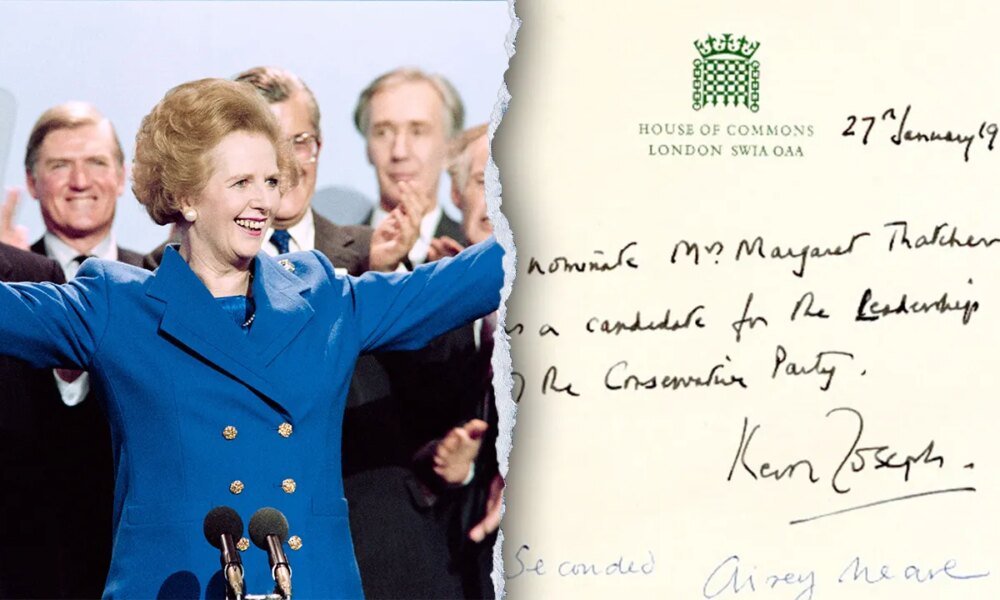 HOUSE OF COMMONS
LONDON SW1A 0AA
27th January 19
nominate Mrs Margaret Thatcher
s a candidate for the Leadership
the Conservative Party.
Keith Joseph.
Seconded Airey Neave